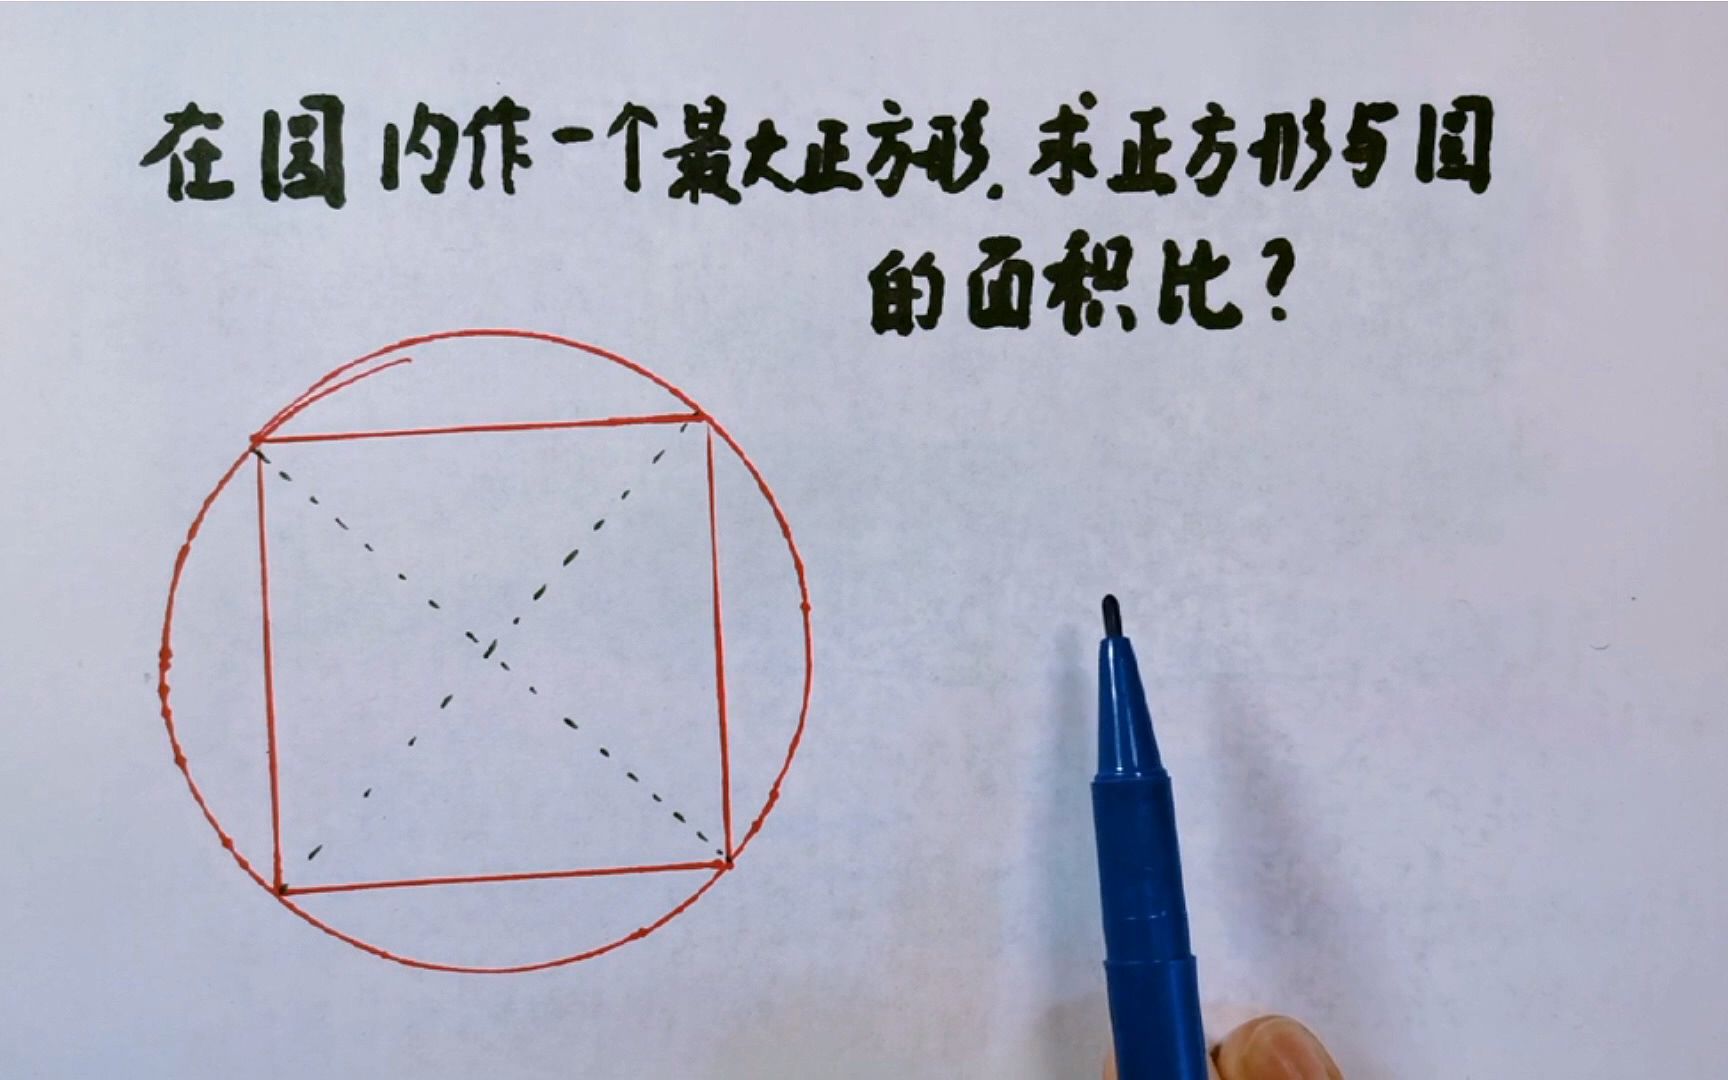 在圆内作一个最大正方形.求正方形与圆
的面积比?